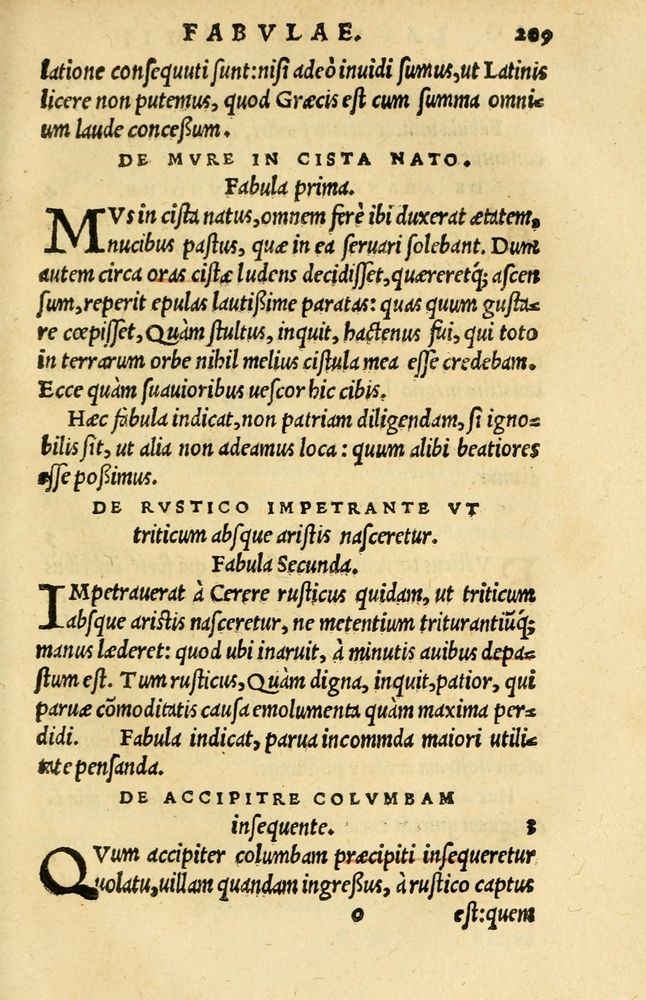 FABVLAE. 289
latione consequuti sunt: nisi adeò inuidi sumus, ut Latinis
licere non putemus, quod Græcis est cum summa omni-
um laude conceßum.
DE MVRE IN CISTA NATO.
Fabula prima.
MVs in cista natus, omnem ferè ibi duxerat ætatem,
nucibus pastus, quæ in ea seruari solebant. Dum
autem circa oras cistæ ludens decidisset, quæreretq́; ascen
sum, reperit epulas lautißime paratas: quas quum gusta-
re cœpisset, Quàm stultus, inquit, hactenus fui, qui toto
in terrarum orbe nihil melius cistula mea esse credebam.
Ecce quàm suauioribus uescor hic cibis.
Hæc fabula indicat, non patriam diligendam, si igno-
bilis sit, ut alia non adeamus loca: quum alibi beatiores
esse poßimus.
DE RVSTICO IMPETRANTE VT
triticum absque aristis nasceretur.
Fabula Secunda.
IMpetrauerat à Cerere rusticus quidam, ut triticum
absque aristis nasceretur, ne metentium triturantiũq́;
manus læderet: quod ubi inaruit, à minutis auibus depa-
stum est. Tum rusticus, Quàm digna, inquit, patior, qui
paruæ cõmoditatis causa emolumenta quàm maxima per-
didi. Fabula indicat, parua incommda maiori utili-
tate pensanda.
DE ACCIPITRE COLVMBAM
insequente. 3
QVum accipiter columbam præcipiti insequeretur
uolatu, uillam quandam ingreßus, à rustico captus
o est: quem